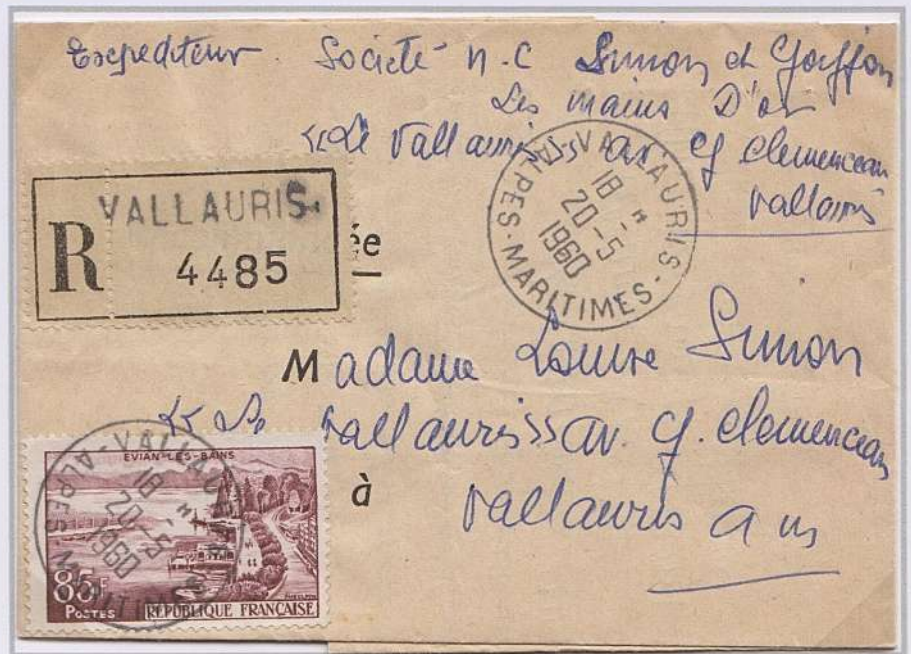 Expediteur Société n.c Simon et
Les mains D'or
«Le Vallauris» av G clemenceau
Vallauris
VALLAURIS
R 4485
ée
VALLAURIS
ALPES-MARITIMES
18 H
20-5
1960
Madame Louise Simon
«Le Vallauris» av. G. clemenceau
à Vallauris a m
EVIAN-LES-BAINS
VALLAURIS
ALPES MARITIMES
18 H
20-5
1960
85F
POSTES
RÉPUBLIQUE FRANÇAISE